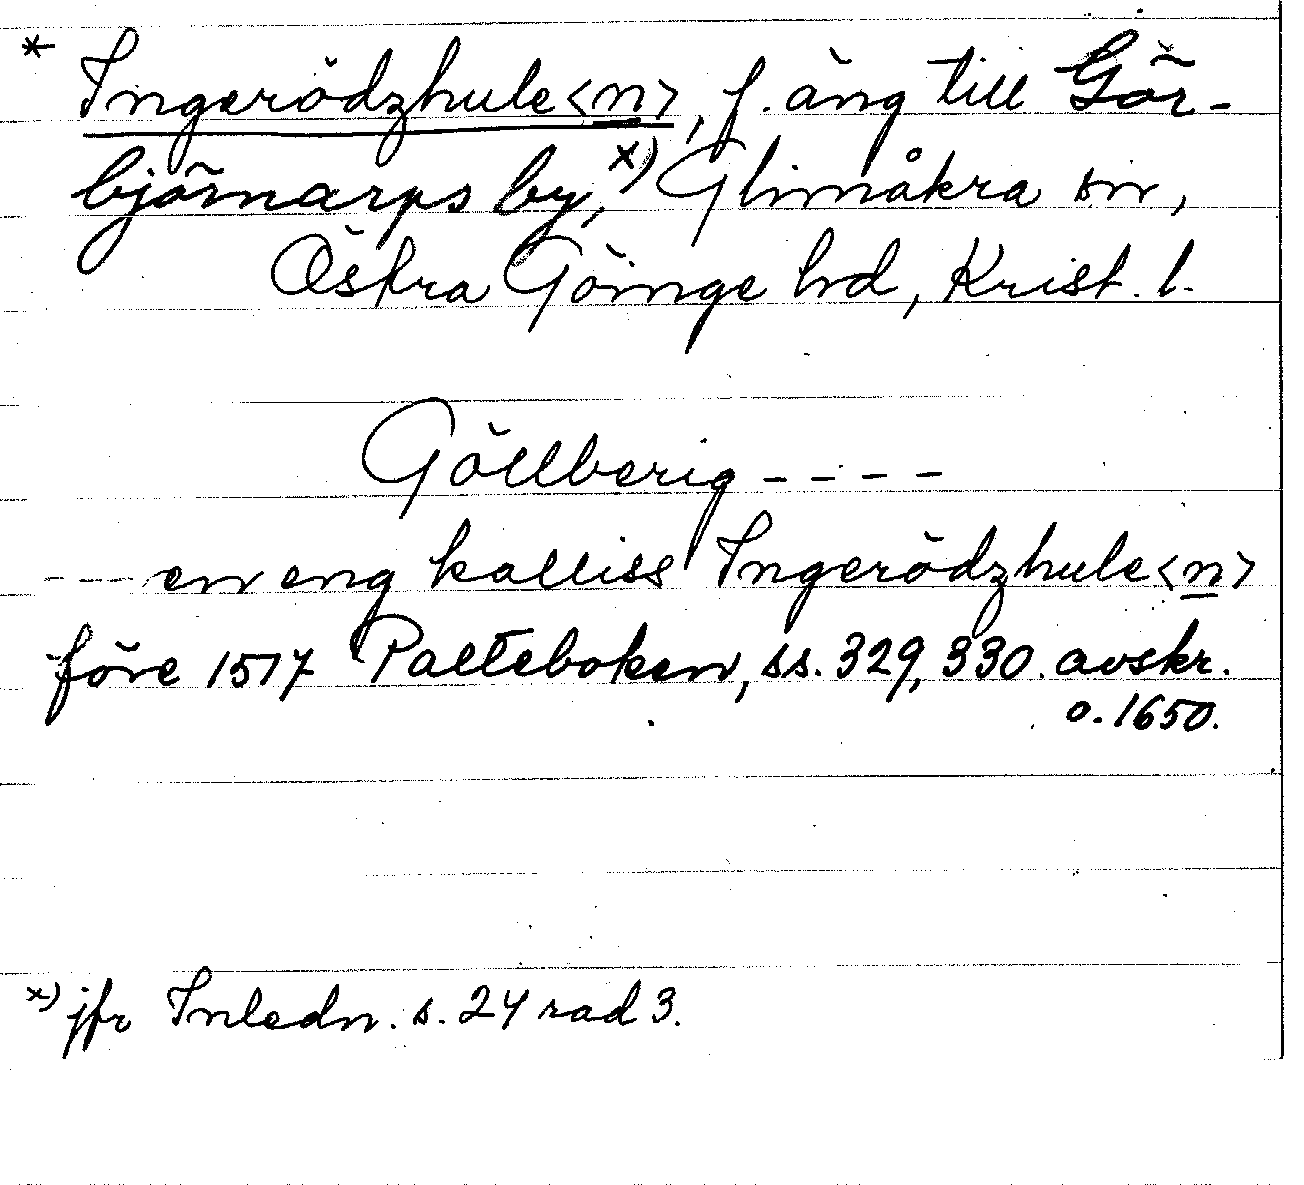 * Ingerödzhule<n>, f. äng till Gör-
björnarps by,x) Glimåkra sn,
Östra Göinge hd, Krist. l.
Göllberig - - - -
- - - en eng kalliss Ingerödzhule<n>
före 1517 Palteboken, ss. 329, 330. avskr.
o. 1650.
x) jfr Inledn. s. 24 rad 3.